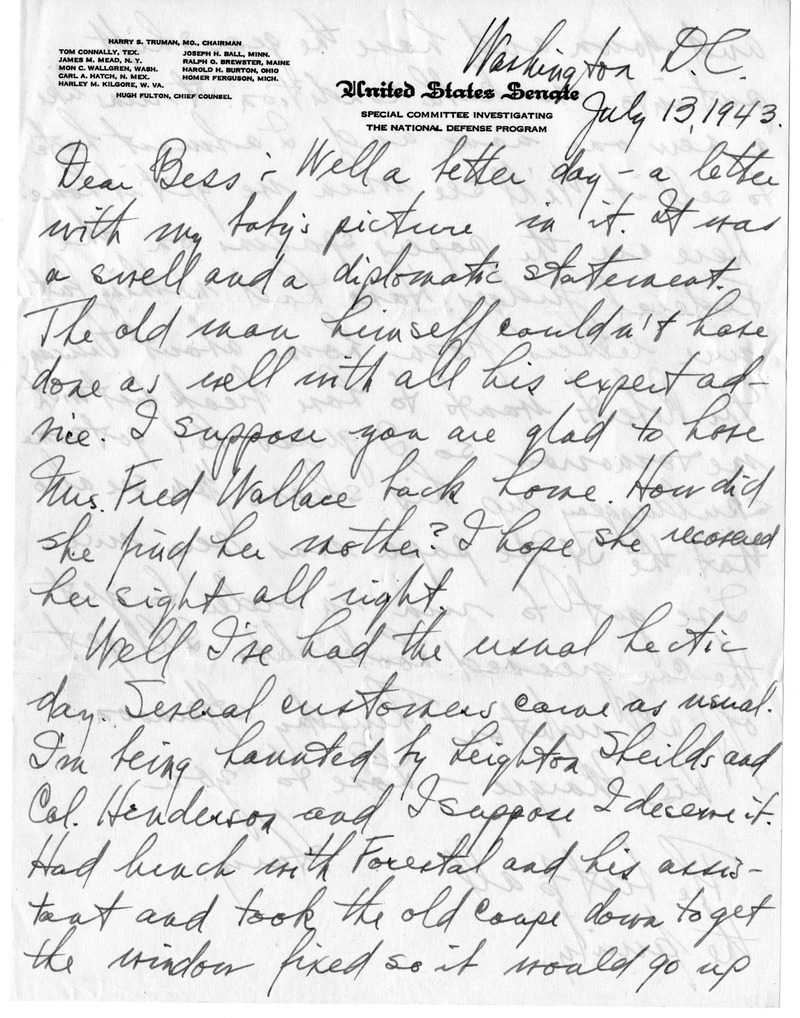 HARRY S. TRUMAN, MO., CHAIRMAN
TOM CONNALLY, TEX.
JAMES M. MEAD, N. Y.
MON C. WALLGREN, WASH.
CARL A. HATCH, N. MEX.
HARLEY M. KILGORE, W. VA.
JOSEPH H. BALL, MINN.
RALPH O. BREWSTER, MAINE
HAROLD H. BURTON, OHIO
HOMER FERGUSON, MICH.
HUGH FULTON, CHIEF COUNSEL
United States Senate
SPECIAL COMMITTEE INVESTIGATING
THE NATIONAL DEFENSE PROGRAM
Washington D.C.
July 13, 1943.
Dear Bess:- Well a better day - a letter
with my baby's picture in it. It was
a swell and a diplomatic statement.
The old man himself couldn't have
done as well with all his expert ad-
vice. I suppose you are glad to have
Mrs. Fred Wallace back home. How did
she find her mother? I hope she recovered
her sight all right.
Well I've had the usual hectic
day. Several customers came as usual.
I'm being haunted by Leighton Sheilds and
Col. Henderson and I suppose I deserve it.
Had lunch with Forestal and his assis-
tant and took the old coupe down to get
the window fixed so it would go up